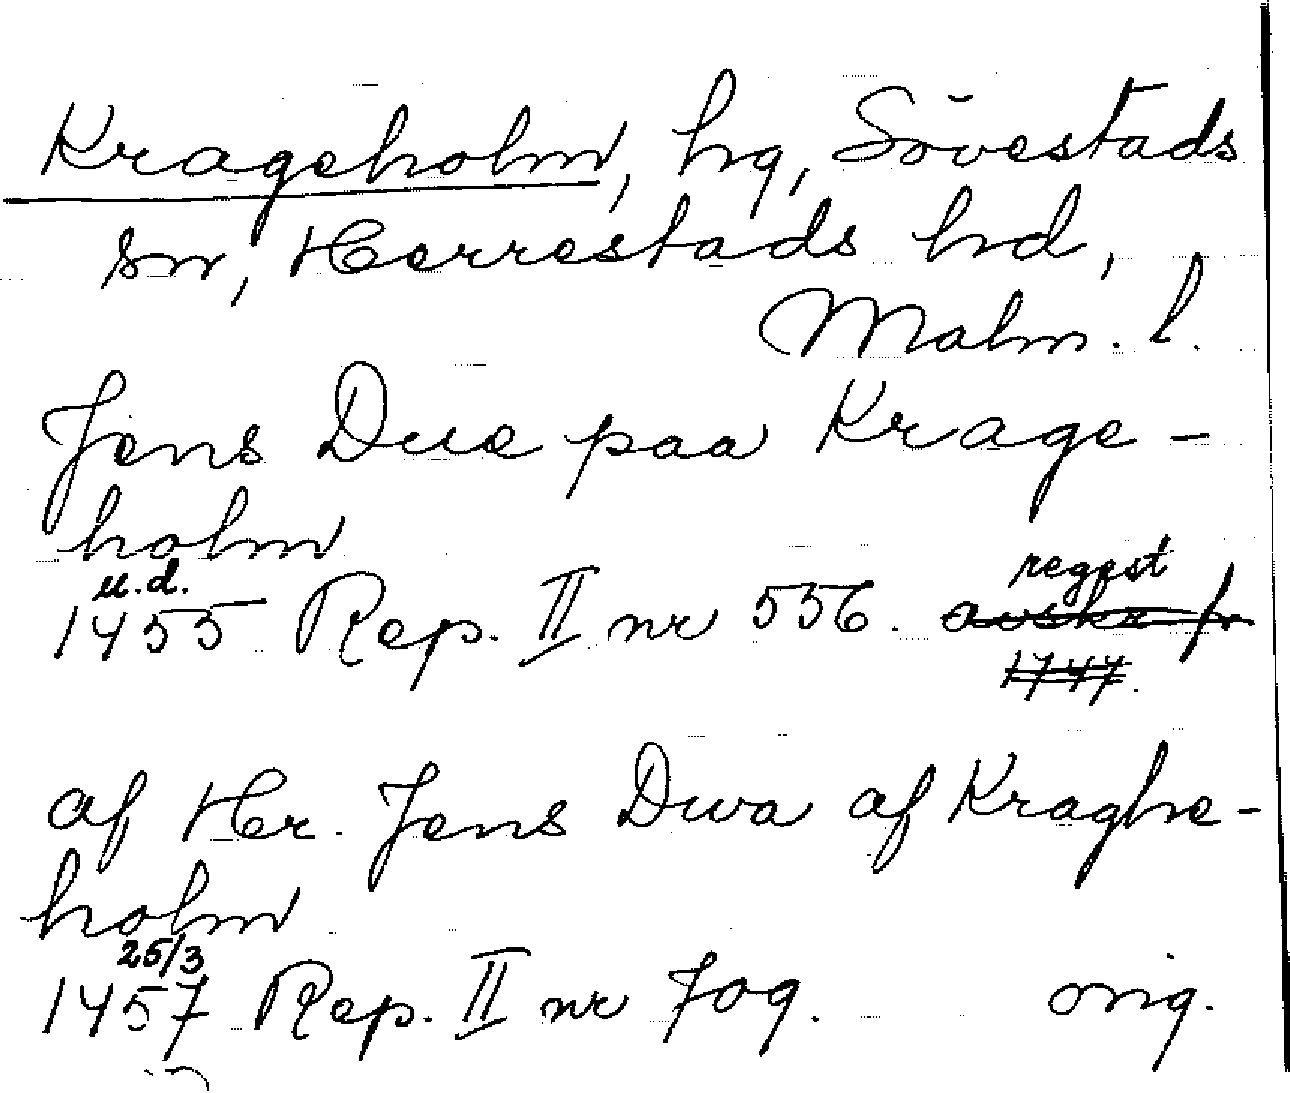 Krageholm, hg, Sövestads
sn, Herrestads hd,
Malm. l.
Jens Due paa Krage-
holm
u.d.
regest
1455 Rep. II nr 556. avskr fr
1747.
af Hr. Jens Dwa af Kraghe-
holm
25/3
1457 Rep. II nr 709. orig.